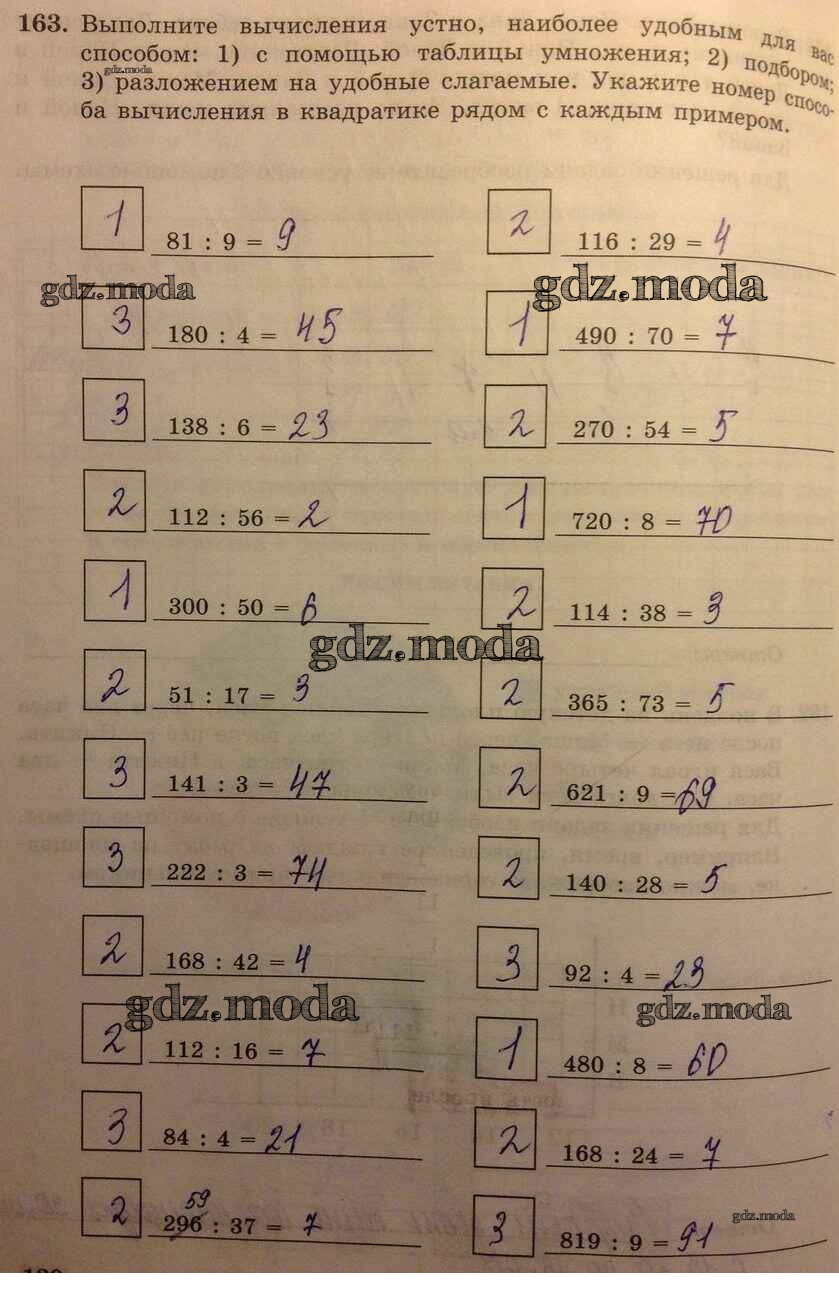 163. Выполните вычисления устно, наиболее удобным для вас
способом: 1) с помощью таблицы умножения; 2) подбором;
gdz.moda
3) разложением на удобные слагаемые. Укажите номер спосо-
ба вычисления в квадратике рядом с каждым примером.
1 81 : 9 = 9
2 116 : 29 = 4
gdz.moda
gdz.moda
3 180 : 4 = 45
1 490 : 70 = 7
3 138 : 6 = 23
2 270 : 54 = 5
2 112 : 56 = 2
1 720 : 8 = 70
1 300 : 50 = 6
2 114 : 38 = 3
gdz.moda
2 51 : 17 = 3
2 365 : 73 = 5
3 141 : 3 = 47
2 621 : 9 = 69
3 222 : 3 = 74
2 140 : 28 = 5
2 168 : 42 = 4
3 92 : 4 = 23
gdz.moda
gdz.moda
2 112 : 16 = 7
1 480 : 8 = 60
3 84 : 4 = 21
2 168 : 24 = 7
59
2 296 : 37 = 7
gdz.moda
3 819 : 9 = 91